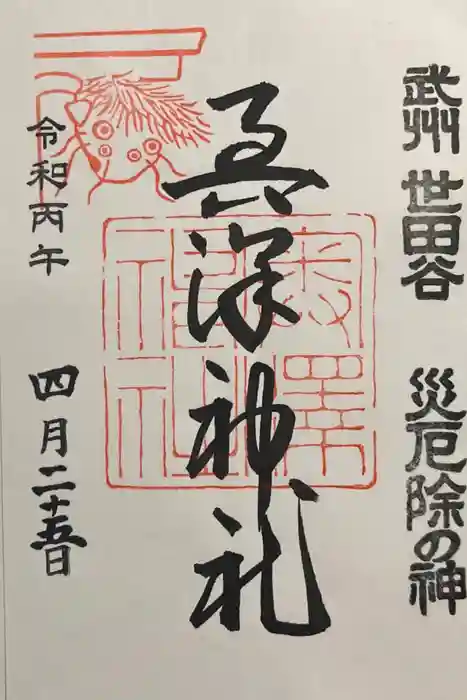 武州 世田谷 災厄除の神
奥澤神社
令和丙午 四月二十五日